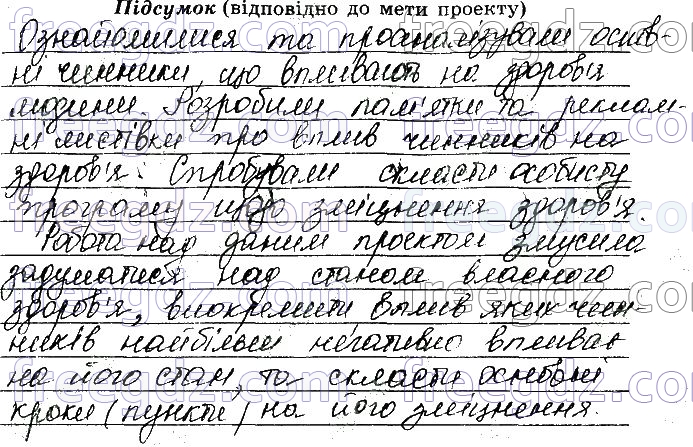 Підсумок (відповідно до мети проекту)
Ознайомилися та проаналізували основ-
ні чинники, що впливають на здоров'я
людини. Розробили пам'ятки та реклам-
ні листівки про вплив чинників на
здоров'я. Спробували скласти особисту
програму щодо зміцнення здоров'я.
Робота над даним проектом змусила
задуматися над станом власного
здоров'я, виокремити вплив яких чин-
ників найбільш негативно впливає
на його стан, та скласти основні
кроки (пункти) на його зміцнення.